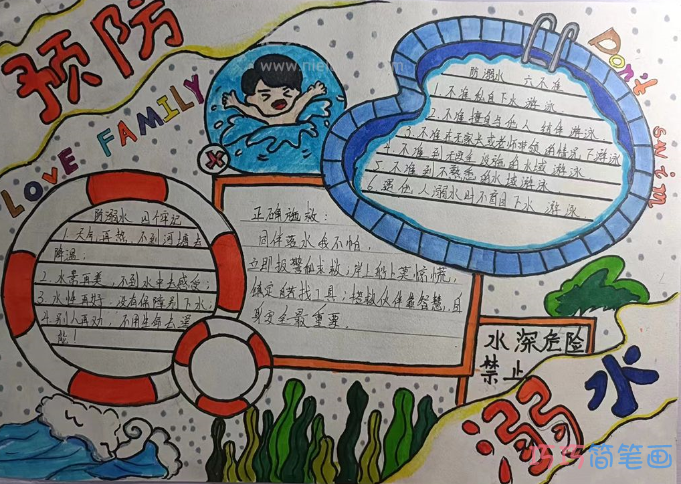 预防
LOVE FAMILY
Don't
swim
防溺水 六不准
1. 不准私自下水游泳
2. 不准擅自与他人结伴游泳
3. 不准在无家长或老师带领的情况下游泳
4. 不准到无安全设施的水域游泳
5. 不准到不熟悉的水域游泳
6. 遇他人溺水时不盲目下水游泳
防溺水 四个牢记
1 天气再热，不到河塘去
降温；
2 水景再美，不到水中去
3 水性再好，没有保障别下水；
4 别人再劝，不用生命去逞
能！
正确施救：
同伴落水我不怕，
立即报警
自
身安全最重要.
水深危险
禁止
溺水
简笔画